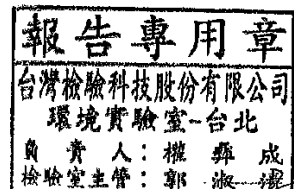 報告專用章
台灣檢驗科技股份有限公司
環境實驗室-台北
負責人：楊舜成
檢驗室主管：郭淑清